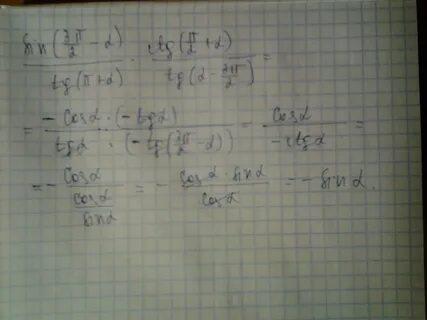 sin(3π/2 - α) / tg(π+α) · ctg(π/2 + α) / tg(α - 3π/2) =
= -cosα · (-tgα) / tgα · (-tg(3π/2 - α)) = cosα / -ctgα =
= - cosα / (cosα / sinα) = - cosα · sinα / cosα = - sin α.